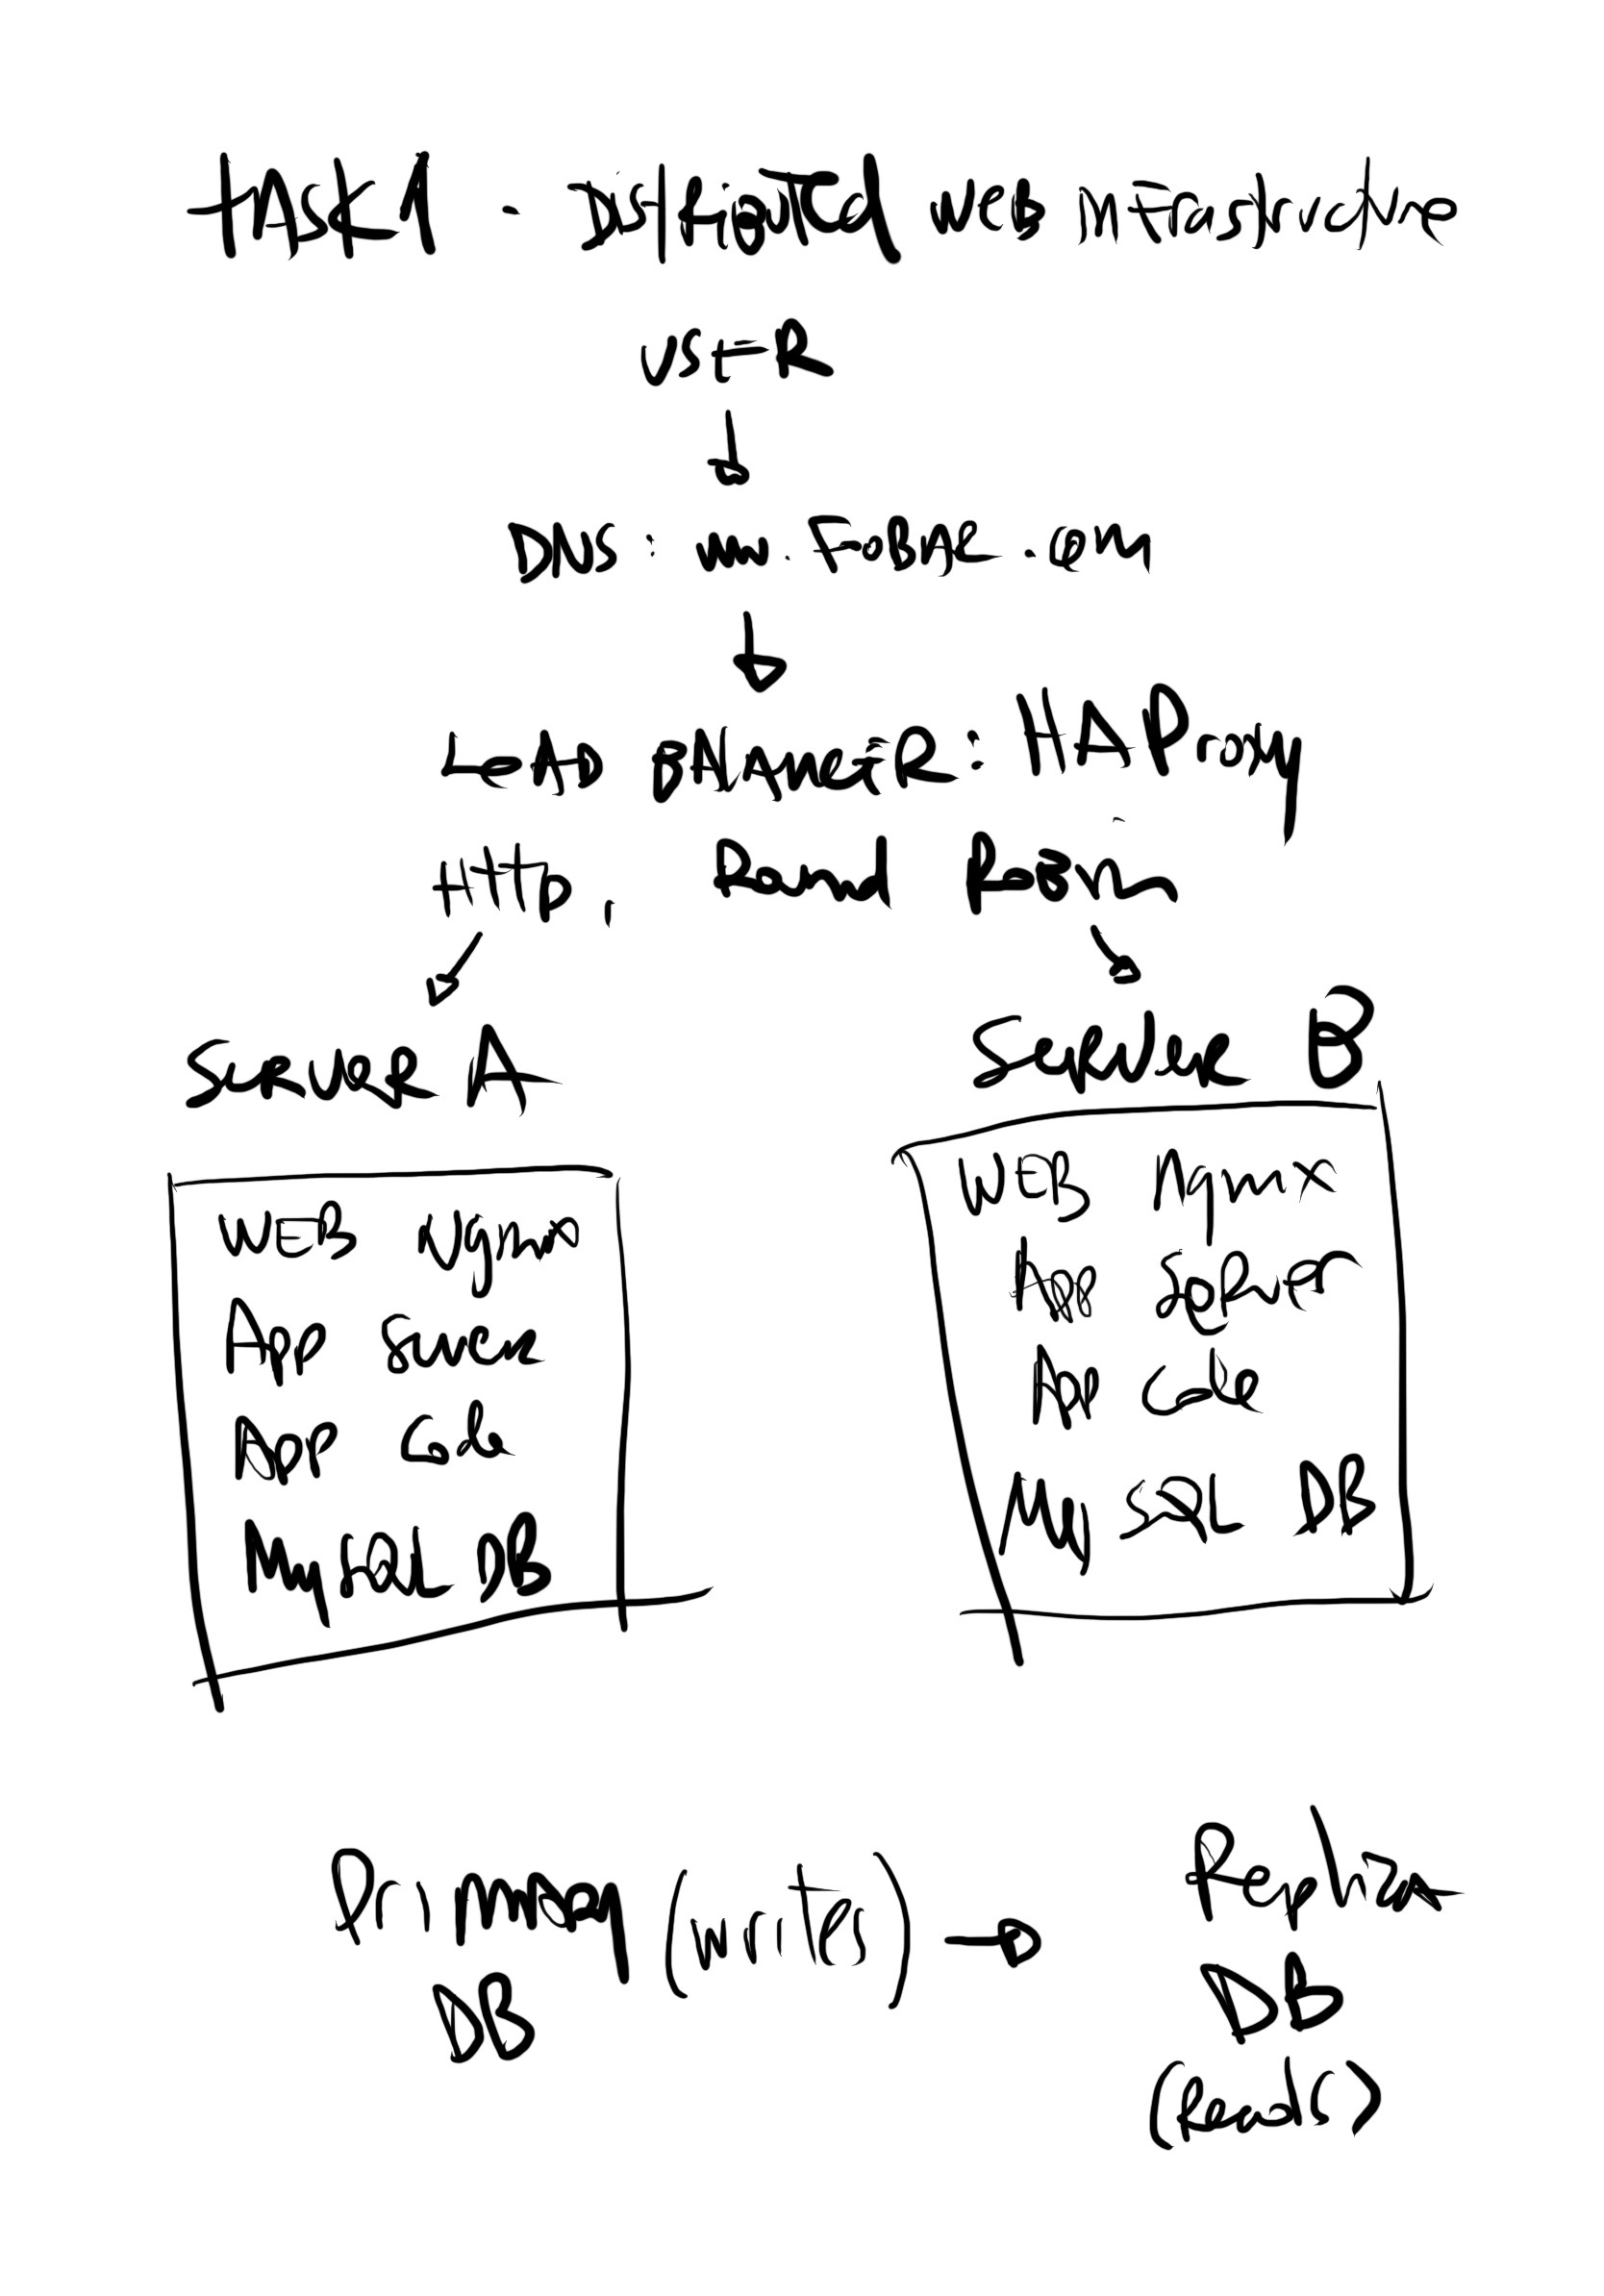 TASK 1 - Distributed web infrastructure
USER
DNS: www.Foobar.com
LOAD BALANCER: HAProxy
HTTP, Round Robin
Server A
Server B
WEB Nginx
App Server
App Code
MySQL DB
WEB Nginx
App Server
App Code
MySQL DB
Primary (writes)
DB
Replica
DB
(Reads)